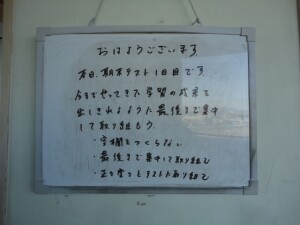 おはようございます
本日、期末テスト1日目です
今までやってきた学習の成果を
出しきれるように最後まで集中
して取り組もう。
・空欄をつくらない
・最後まで集中して取り組む
・正々堂々とテストに取り組む